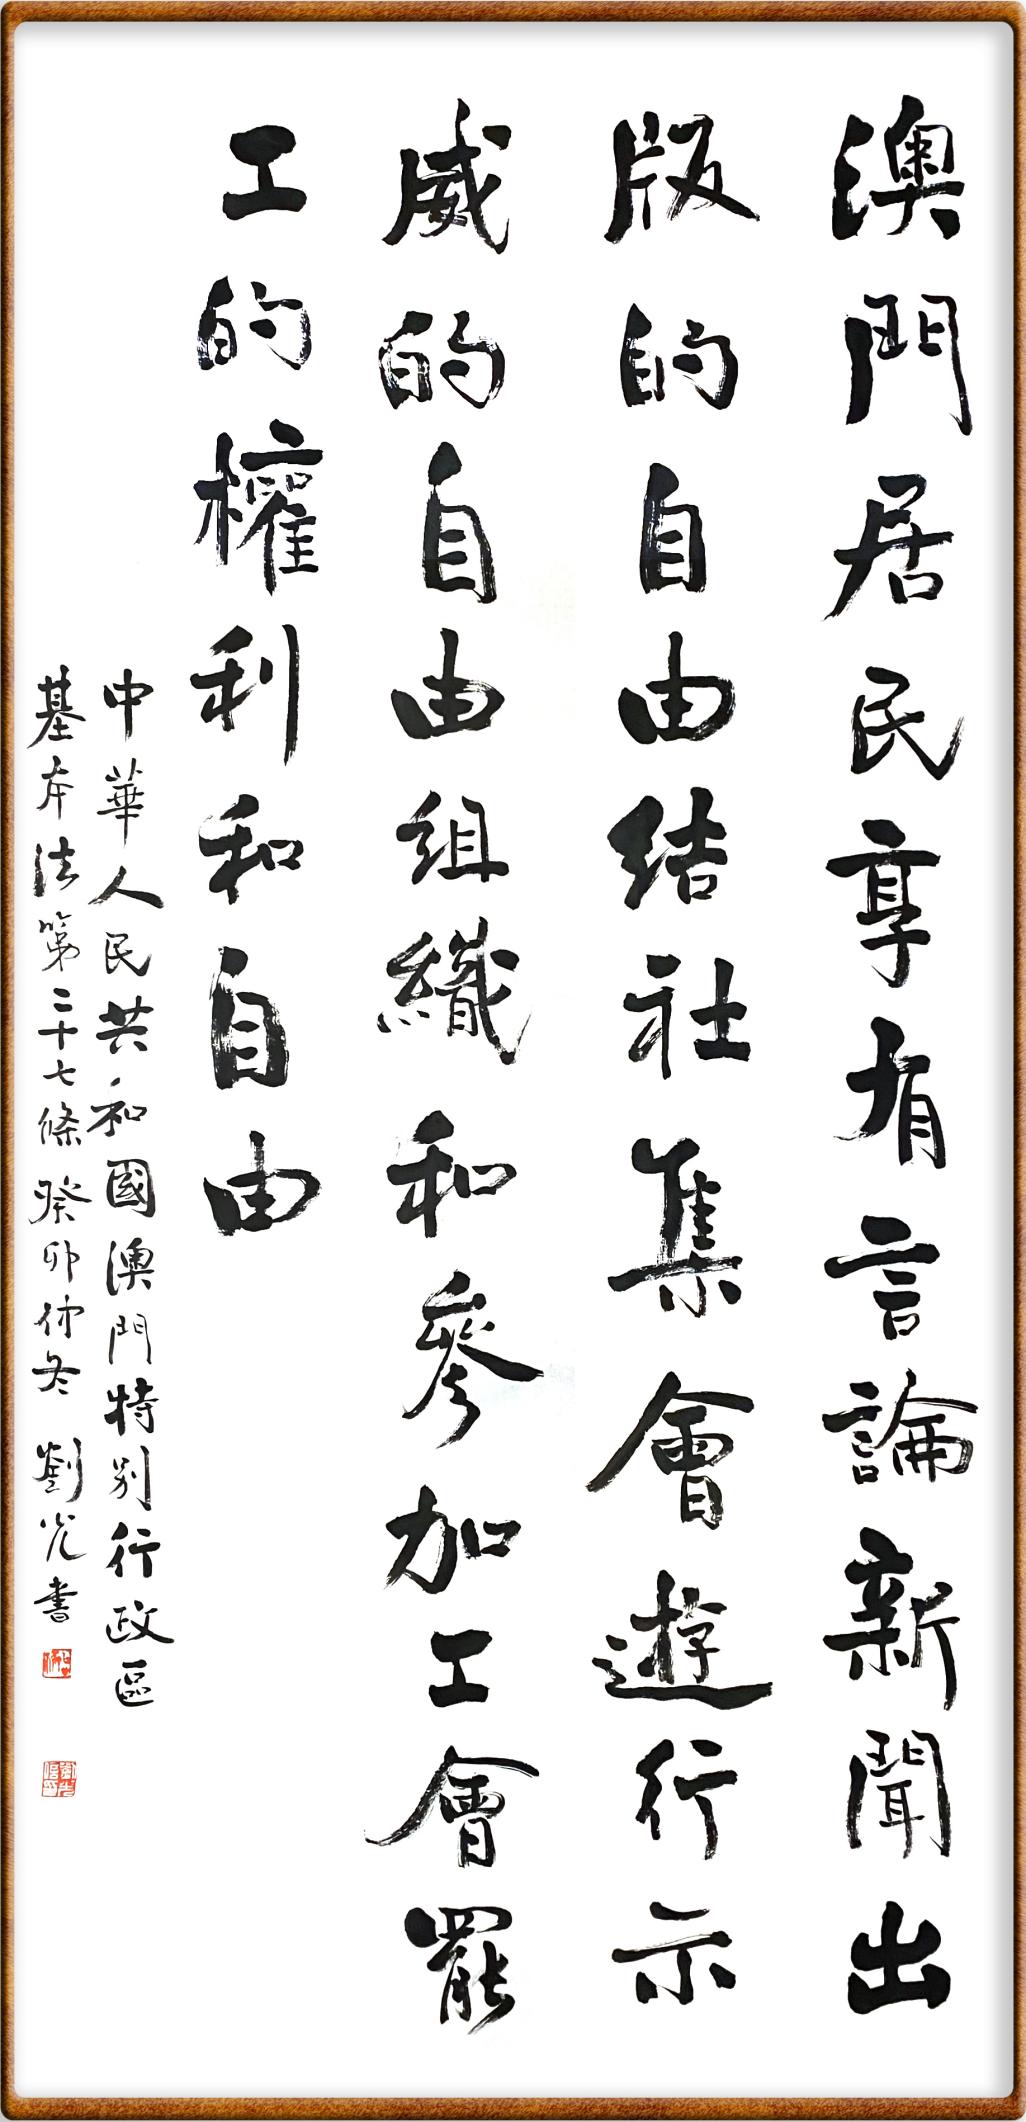 澳門居民享有言論新聞出
版的自由結社集會遊行示
威的自由組織和參加工會罷
工的權利和自由
中華人民共和國澳門特別行政區
基本法第二十七條 癸卯仲冬 劉光書